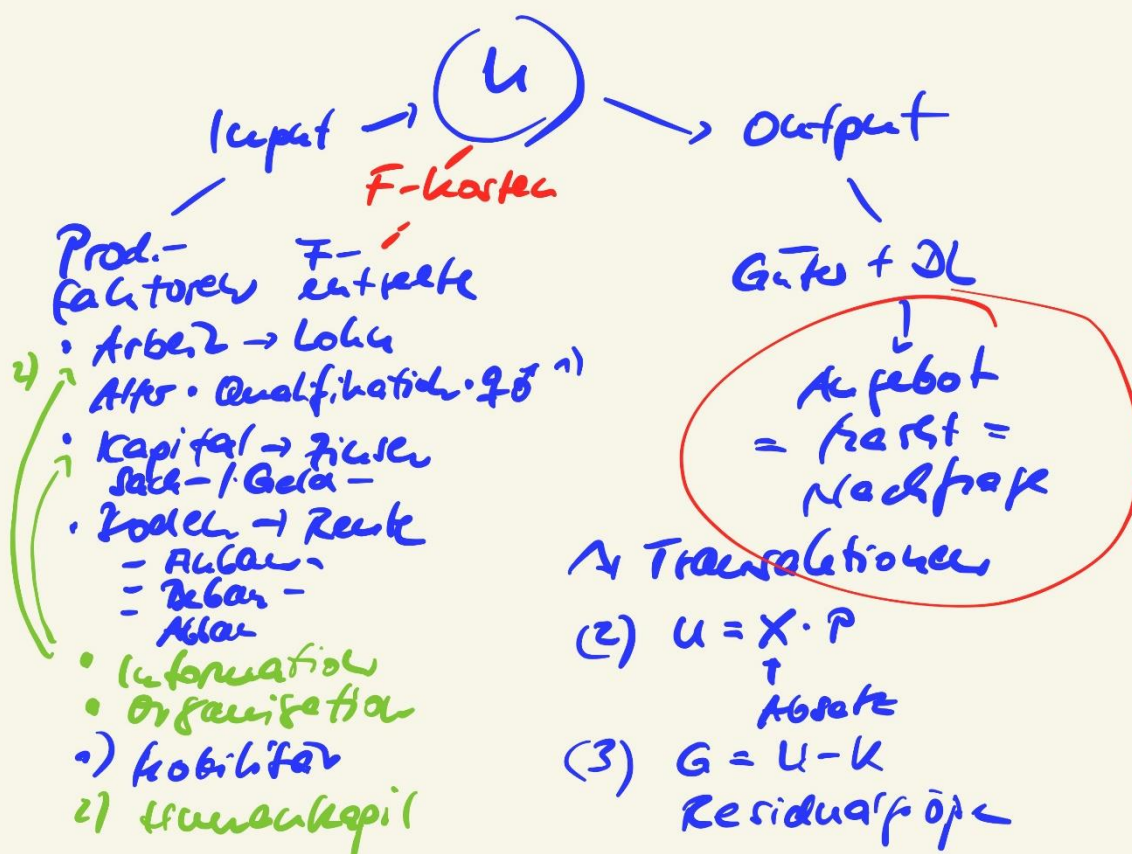 U
Input → → Output
F-Kosten
Prod.-
faktoren
F-
entgelte
• Arbeit → Lohn
Alter • Qualifikation • ♀♂ 1)
2)
• Kapital → Zinsen
Sach-/Geld-
• Boden → Rente
- Anbau -
- Bebau -
Abbau
• Information
• Organisation
1) Mobilität
2) Humankapil
Güter + DL
↓
Angebot
= Markt =
Nachfrage
Transaktionen
(2) U = X · P
↑
Absatz
(3) G = U - K
Residualgröße